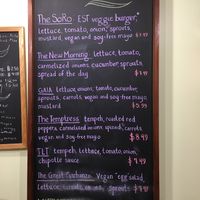 The SoRo EST veggie burger,
lettuce, tomato, onion, sprouts,
mustard, vegan and soy-free mayo
The New Morning lettuce, tomato,
carmelized onions, cucumber, sprouts,
spread of the day
GAIA lettuce, onions, tomato, cucumber,
sprouts, carrots, vegan and soy-free
mayo $5.99
The Temptress tempeh, roasted red
peppers, carmelized onions, spinach, carrots,
vegan and soy-free mayo $8.99
TLT tempeh, lettuce, tomato, onion,
chipotle sauce
The Great Garbanzo Vegan egg salad,
lettuce, tomato, onion, sprouts